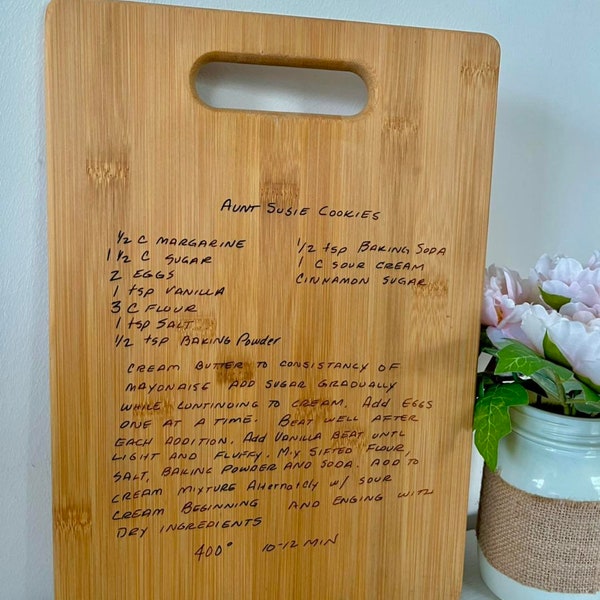 AUNT SUSIE COOKIES
1/2 C MARGARINE
1 1/2 C SUGAR
2 EGGS
1 tsp VANILLA
3 C FLOUR
1 tsp SALT
1/2 tsp BAKING Powder
1/2 tsp BAKING SODA
1 C SOUR CREAM
CINNAMON SUGAR
CREAM BUTTER TO CONSISTANCY OF
MAYONAISE ADD SUGAR GRADUALLY
WHILE CUNTINDING TO CREAM. Add EGGS
ONE AT A TIME. BEAT WELL AFTER
EACH ADDITION. Add VANILLA BEAT UNTL
LIGHT AND FLUFFY. MIX SIFTED FLOUR,
SALT, BAKING POWDER AND SODA. ADD TO
CREAM MIXTURE AlterNATELY w/ SOUR
CREAM BEGINNING AND ENGING WITH
DRY INGREDIENTS
400° 10-12 MIN